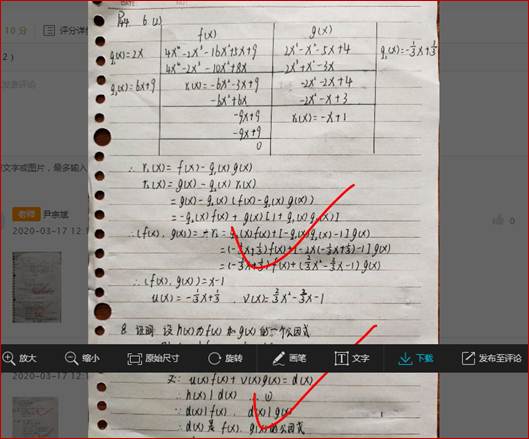 10 分
评分详
2）
发表评论
文字或图片，最多输入
老师 尹宗斌
2020-03-17 12
0
2020-03-17 1
P44 6 (2)
f(x) g(x)
q₁(x)=2x 4x⁴-2x³-16x²+5x+9 2x³-x²-5x+4 q₂(x)=-⅓x+⅓
4x⁴-2x³-10x²+8x 2x³+x²-3x
q₃(x)=6x+9 r₁(x)=-6x²-3x+9 -2x²-2x+4
-6x²+6x -2x²-x+3
-9x+9 r₂(x)=-x+1
-9x+9
0
∴ r₁(x)=f(x)-q₁(x)g(x)
r₂(x)=g(x)-q₂(x)r₁(x)
=g(x)-q₂(x)(f(x)-q₁(x)g(x))
=-q₂(x)f(x)+g(x)[1+q₁(x)q₂(x)]
∴(f(x),g(x))=-r₂=q₂(x)f(x)+[-q₁(x)q₂(x)-1]g(x)
=(-⅓x+⅓)f(x)+[-2x(-⅓x+⅓)-1]g(x)
=(-⅓x+⅓)f(x)+(⅔x²-⅔x-1)g(x)
∴(f(x),g(x))=x-1
u(x)=-⅓x+⅓ , v(x)=⅔x²-⅔x-1
8. 证明: 设h(x)为f(x)和g(x)的一个公因式
放大 缩小 原始尺寸 旋转 画笔 文字 下载 发布至评论
又∵ u(x)f(x)+v(x)g(x)=d(x)
∴ h(x)|d(x) ①
∵ d(x)|f(x) , d(x)|g(x)
∴ d(x)是f(x),g(x)的公因式